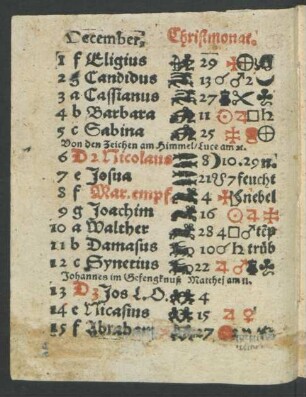 December. Christmonat.
1 f Eligius 29
2 g Candidus 13 ♂ 2 ☾
3 a Cassianus 27
4 b Barbara 11 ☉ ♃ □ ♄
5 c Sabina 25
Von den Zeichen am Himmel/ Luce am 21.
6 D 2 Nicolaus 8 ☽ 10. 29 m.
7 e Josua 21 7 feucht
8 f Mar. empf. 4 nebel
9 g Joachim 16 ☉ ♃
10 a Walther 28 ♃ ♂
11 b Damasus 10 ♂ ♄ trüb
12 c Synetius 22 ♃ ♂
Johannes im Gefengknuß Matthei am 11.
13 D 3 Jos L.O. 4
14 e Nicasius 15 ♃ ♀
15 f Abraham 27